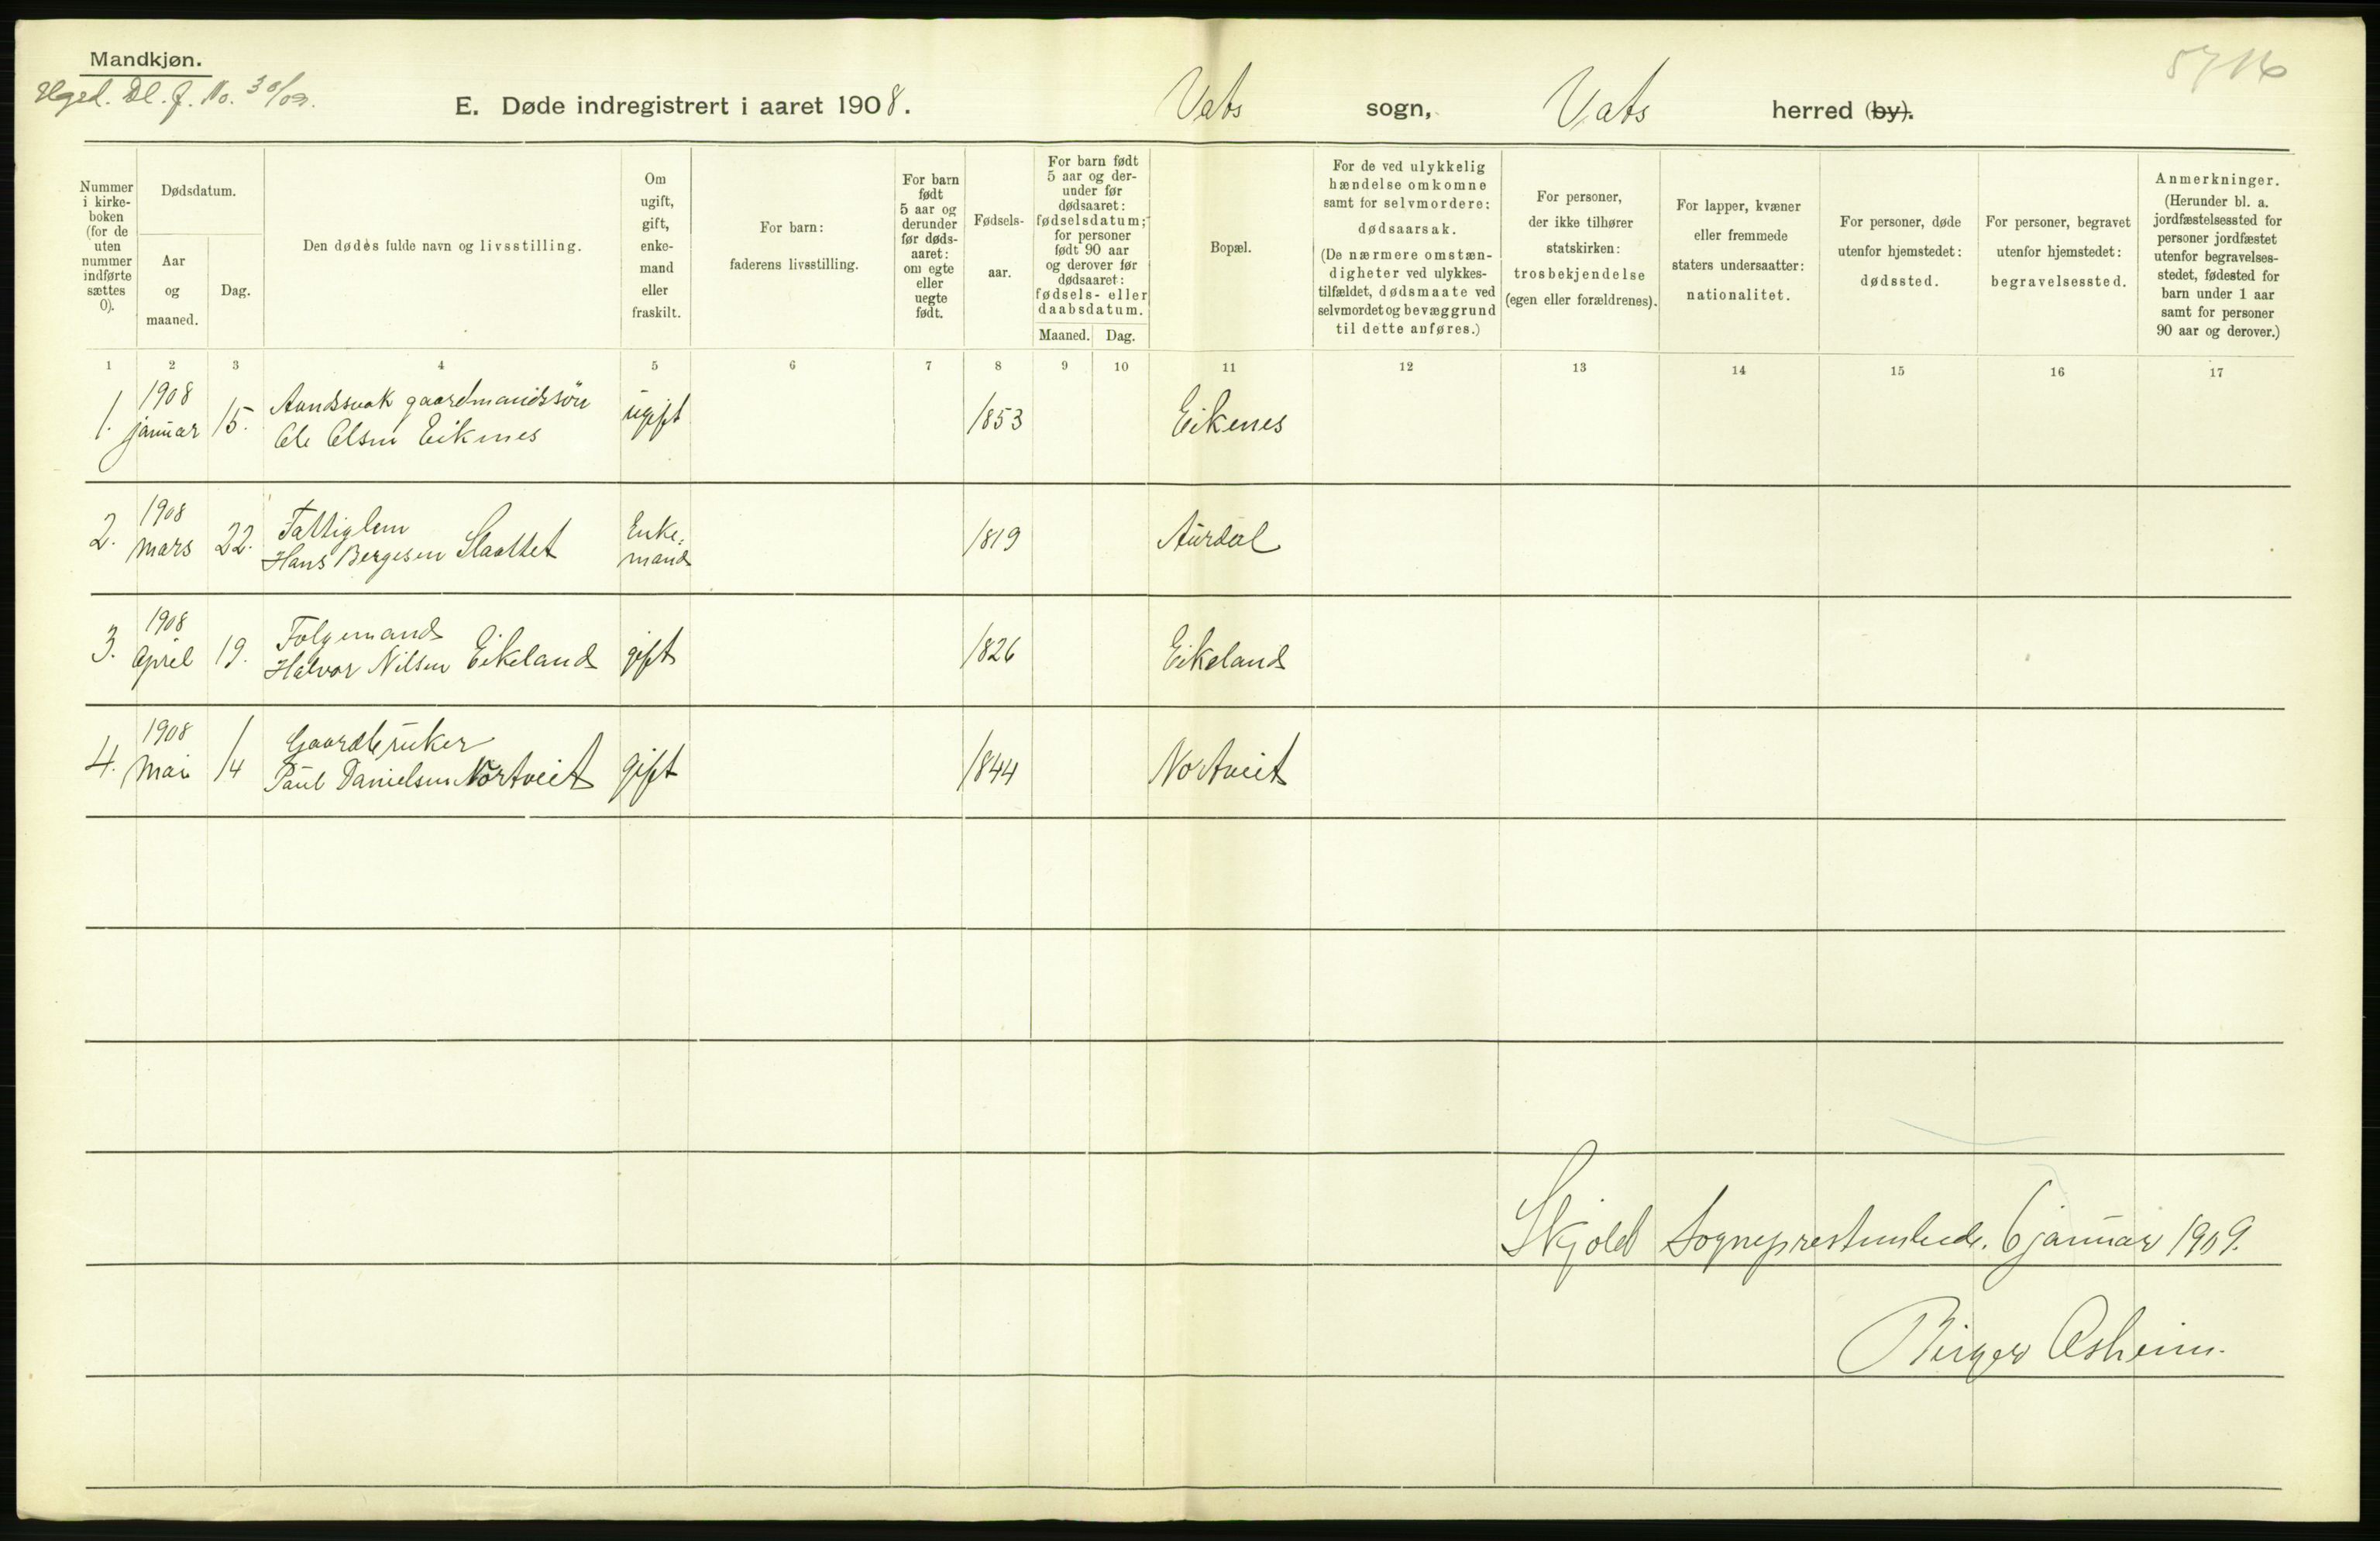 Mandkjøn.
Hged. Dl. J. No. 30/09.
5716
E. Døde indregistrert i aaret 1908. Vats sogn, Vats herred (by).
Nummer i kirkeboken (for de uten nummer indførte sættes 0).
Dødsdatum.
Aar og maaned.
Dag.
Den dødes fulde navn og livsstilling.
Om ugift, gift, enkemand eller fraskilt.
For barn: faderens livsstilling.
For barn født 5 aar og derunder før dødsaaret: om egte eller uegte født.
Fødselsaar.
For barn født 5 aar og derunder før dødsaaret: fødselsdatum; for personer født 90 aar og derover før dødsaaret: fødsels- eller daabsdatum.
Maaned. Dag.
Bopæl.
For de ved ulykkelig hændelse omkomne samt for selvmordere: dødsaarsak. (De nærmere omstændigheter ved ulykkestilfældet, dødsmaate ved selvmordet og bevæggrund til dette anføres.)
For personer, der ikke tilhører statskirken: trosbekjendelse (egen eller forældrenes).
For lapper, kvæner eller fremmede staters undersaatter: nationalitet.
For personer, døde utenfor hjemstedet: dødssted.
For personer, begravet utenfor hjemstedet: begravelsessted.
Anmerkninger. (Herunder bl. a. jordfæstelsessted for personer jordfæstet utenfor begravelsesstedet, fødested for barn under 1 aar samt for personer 90 aar og derover.)
1 2 3 4 5 6 7 8 9 10 11 12 13 14 15 16 17
1. 1908 januar 15. Aandssvak gaardmandssön Ole Olsen Eikenes ugift 1853 Eikenes
2. 1908 mars 22. Fattiglem Hans Bergesen Slaattet Enkemand 1819 Aurdal
3. 1908 April 19. Folgemand Halvor Nilsen Eikeland gift 1826 Eikeland
4. 1908 Mai 14 Gaardbruker Paul Danielsen Nortveit gift 1844 Nortveit
Skjold Sogneprestembede. 6 januar 1909.
Birger Osheim.